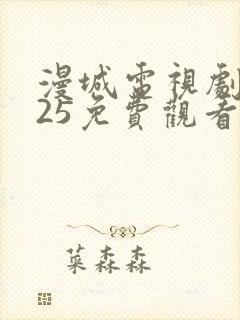 漫城電視劇
25免費觀看
菜森森